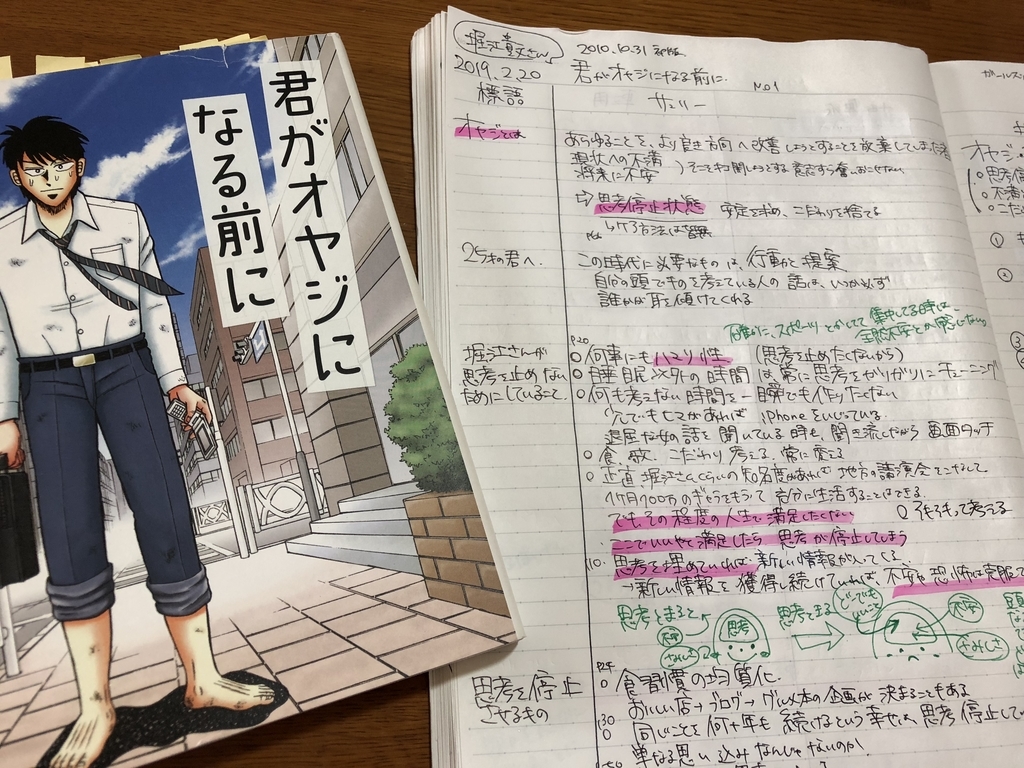 君がオヤジに
なる前に
堀江貴文さん
2010.10.31 初版
2019.2.20
君がオヤジになる前に.
No.1
標語
サマリー
オヤジとは
あらゆることを、より良き方向へ改善しようとすることを放棄してしまった者
現状への不満
将来に不安
そこを打開しようとする意志すら奮いおこせない
思考停止状態
安定を求め、こだわりを捨てる
25才の君へ.
この時代に必要なものは、行動と提案
自分の頭でものを考えている人の話は、いつか必ず
誰かが耳を傾けてくれる
確かに、スポーツとかしてて集中してる時は
全然不安とか感じない。
堀江さんが
思考を止めない
ためにしていること.
P20
何事にもハマり性 (思考を止めたくないから)
睡眠以外の時間は常に思考をガリガリにチューニング
何も考えない時間を一瞬でも作りたくない
少しでもヒマがあれば、iPhoneをいじっている
退屈な女の話を聞いている時も、聞き流しながら画面タッチ
食、服、こだわり考える、常に変える
正直堀江さんくらいの知名度があれば地方の講演会をこなして
1ヶ月100万のギャラをもらって充分に生活することはできる.
でもその程度の人生で満足したくない
ここでいいやと満足したら思考が停止してしまう
思考を埋めていれば新しい情報が入ってくる
→新しい情報を獲得し続けていれば、不安や恐怖は克服
思考とまると
不安
さみしさ
思考
思考とまる
どーでも
いいこと
不安
さみしさ
思考を停止
させるもの
P24
食習慣の均質化.
おいしい店→ブログ→グルメ本の企画が決まることもある
同じことを何十年も続けるという幸せは、思考停止して
単なる思い込みなんじゃないのか.
オヤジ
思考停
不満
こだ
①
②